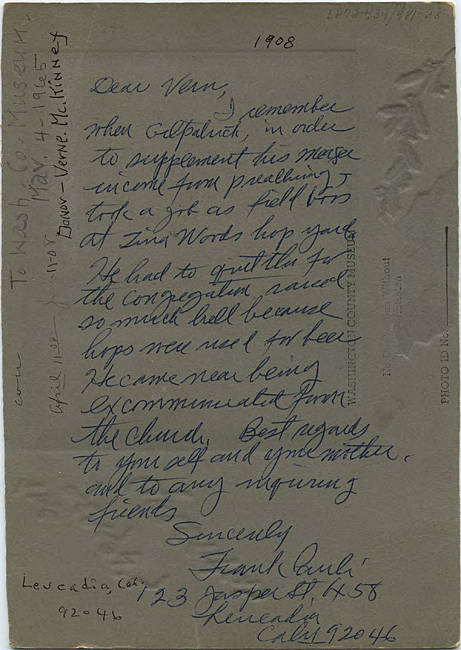 1908
Dear Vern,
I remember
when Gilpatrick, in order
to supplement his meager
income from preaching,
took a job as field boss
at Zina Woods hop yard
He had to quit this for
the congregation raised
so much hell because
hops were used for beer
He came near being
excommunicated from
the church. Best regards
to yourself and your mother.
and to any inquiring
friends
Sincerely
Frank
123 Jasper St, #58
Leucadia
Calif 92046
Leucadia, Cal.
92046
To Wash. Co. Museum.
Mar. 4 - 1965
Donor - Verne. Mc.Kinney
11-08
WASHINGTON COUNTY MUSEUM
Without
PHOTO ID No.